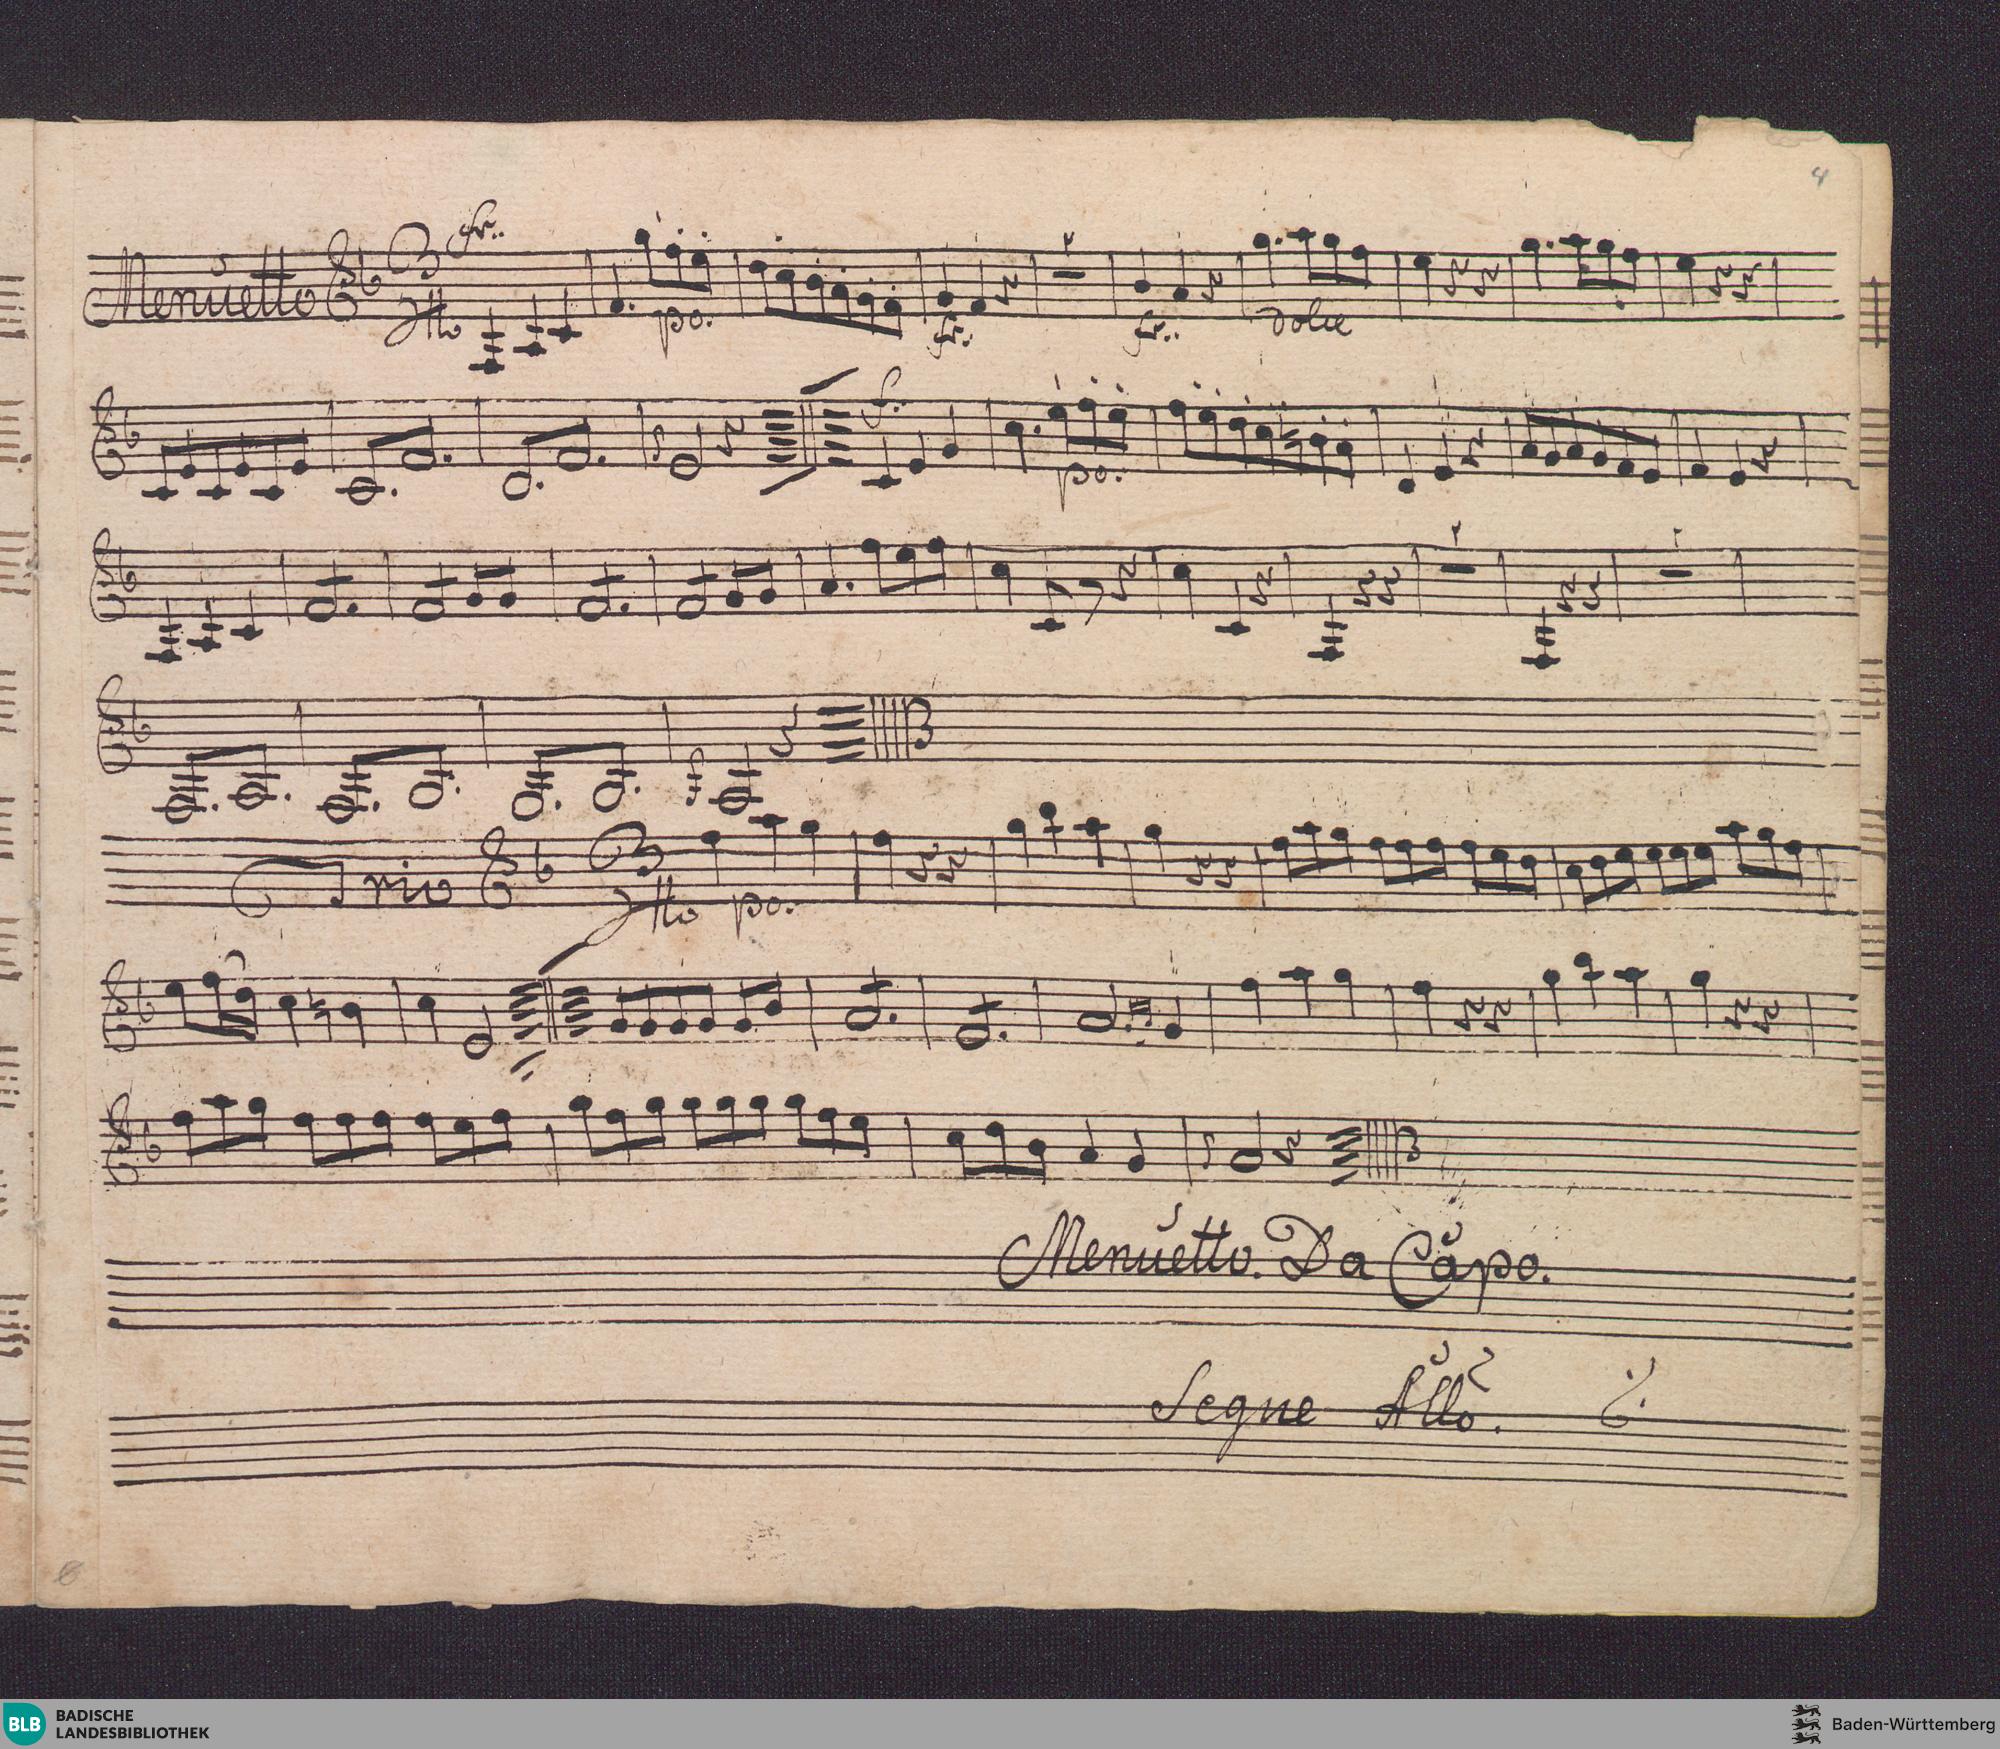 4
Menuetto 3 fr:.
2tto po: fr: fr:. dolce
f:.
po:
Trio 3
2tto po:
Menuetto. Da Capo.
Segue Allo.
6
BLB BADISCHE
LANDESBIBLIOTHEK
Baden-Württemberg